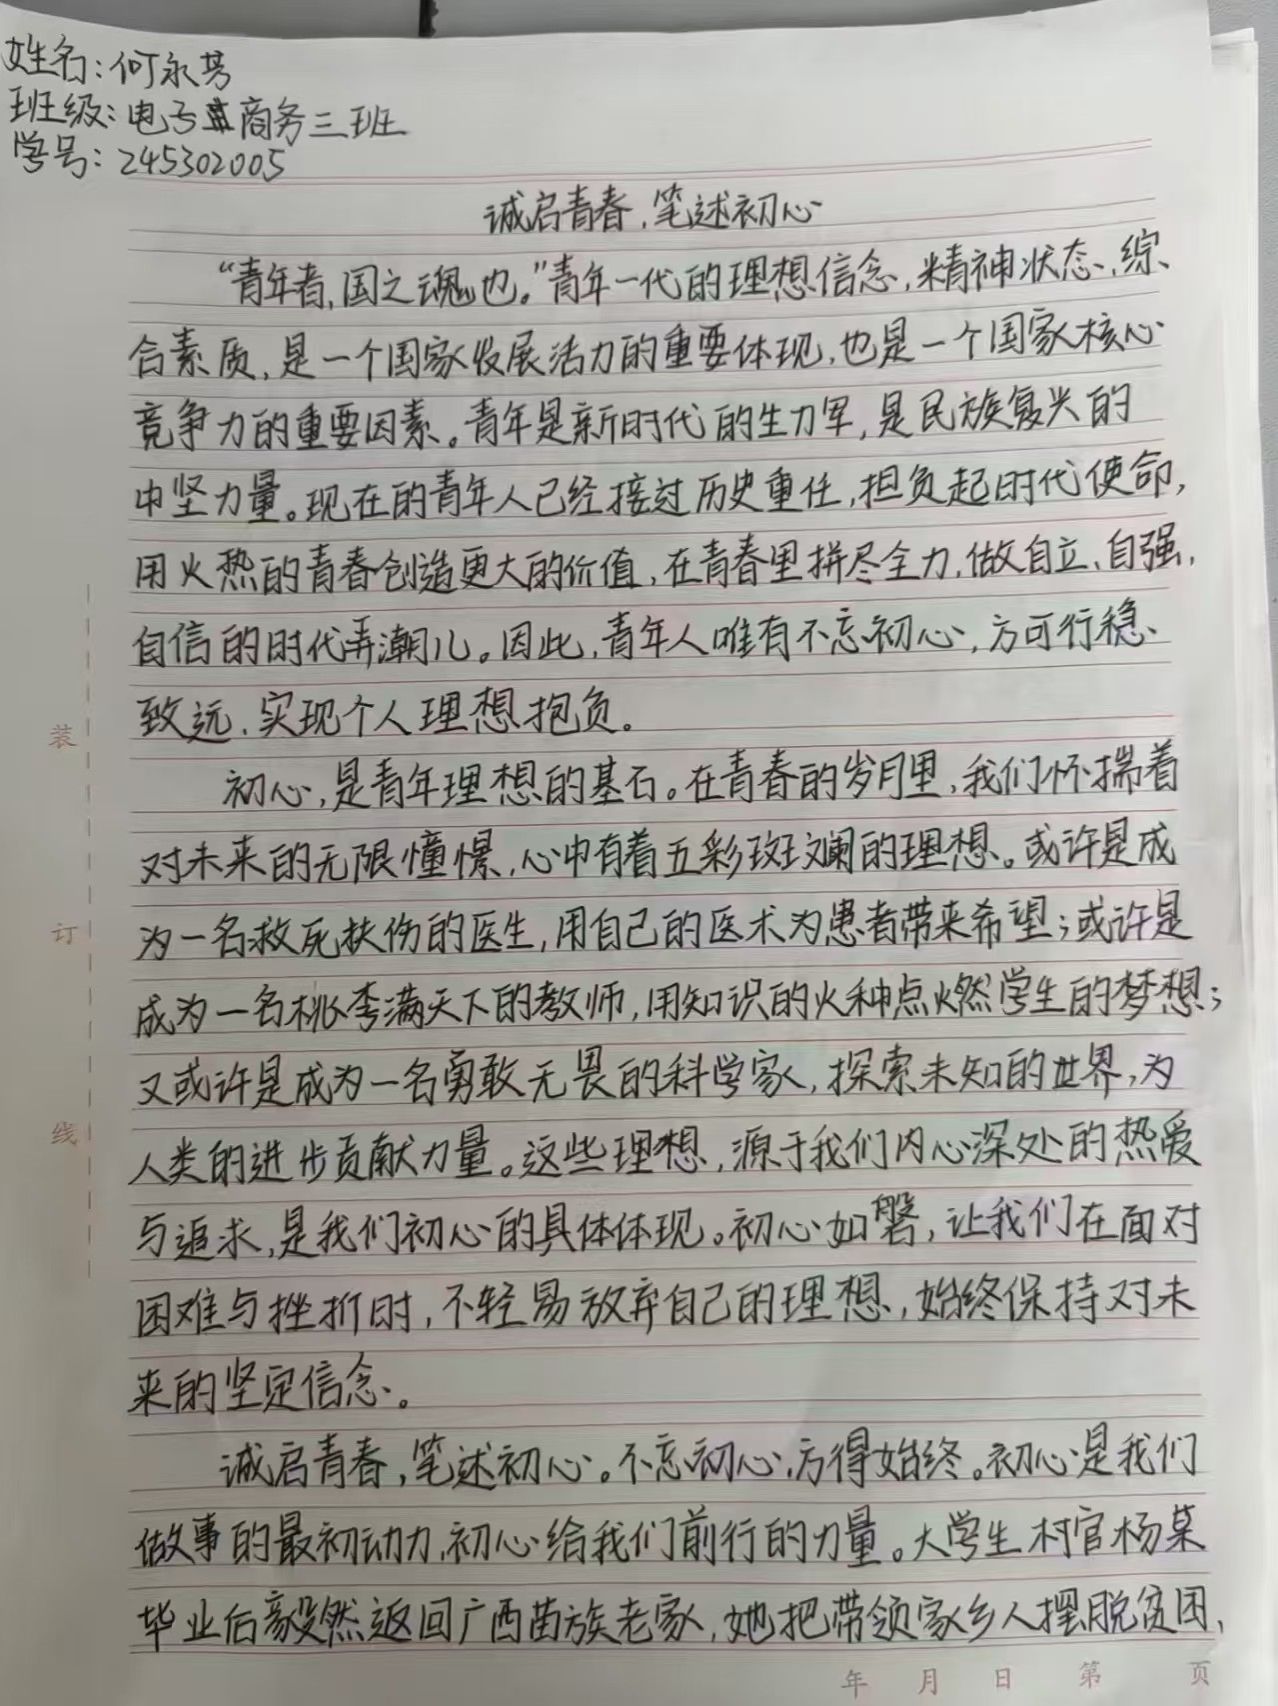 姓名：何永芳
班级：电子商务三班
学号：245302005
诚启青春，笔述初心
“青年者，国之魂也。”青年一代的理想信念，精神状态、综
合素质，是一个国家发展活力的重要体现，也是一个国家核心
竞争力的重要因素。青年是新时代的生力军，是民族复兴的
中坚力量。现在的青年人已经接过历史重任，担负起时代使命，
用火热的青春创造更大的价值，在青春里拼尽全力，做自立、自强，
自信的时代弄潮儿。因此，青年人唯有不忘初心，方可行稳
致远，实现个人理想抱负。
初心，是青年理想的基石。在青春的岁月里，我们怀揣着
对未来的无限憧憬，心中有着五彩斑斓的理想。或许是成
为一名救死扶伤的医生，用自己的医术为患者带来希望；或许是
成为一名桃李满天下的教师，用知识的火种点燃学生的梦想；
又或许是成为一名勇敢无畏的科学家，探索未知的世界，为
人类的进步贡献力量。这些理想，源于我们内心深处的热爱
与追求，是我们初心的具体体现。初心如磐，让我们在面对
困难与挫折时，不轻易放弃自己的理想，始终保持对未
来的坚定信念。
诚启青春，笔述初心。不忘初心，方得始终。初心是我们
做事的最初动力，初心给我们前行的力量。大学生村官杨某
毕业后毅然返回广西苗族老家，她把带领家乡人摆脱贫困，
装
订
线
年 月 日 第 页